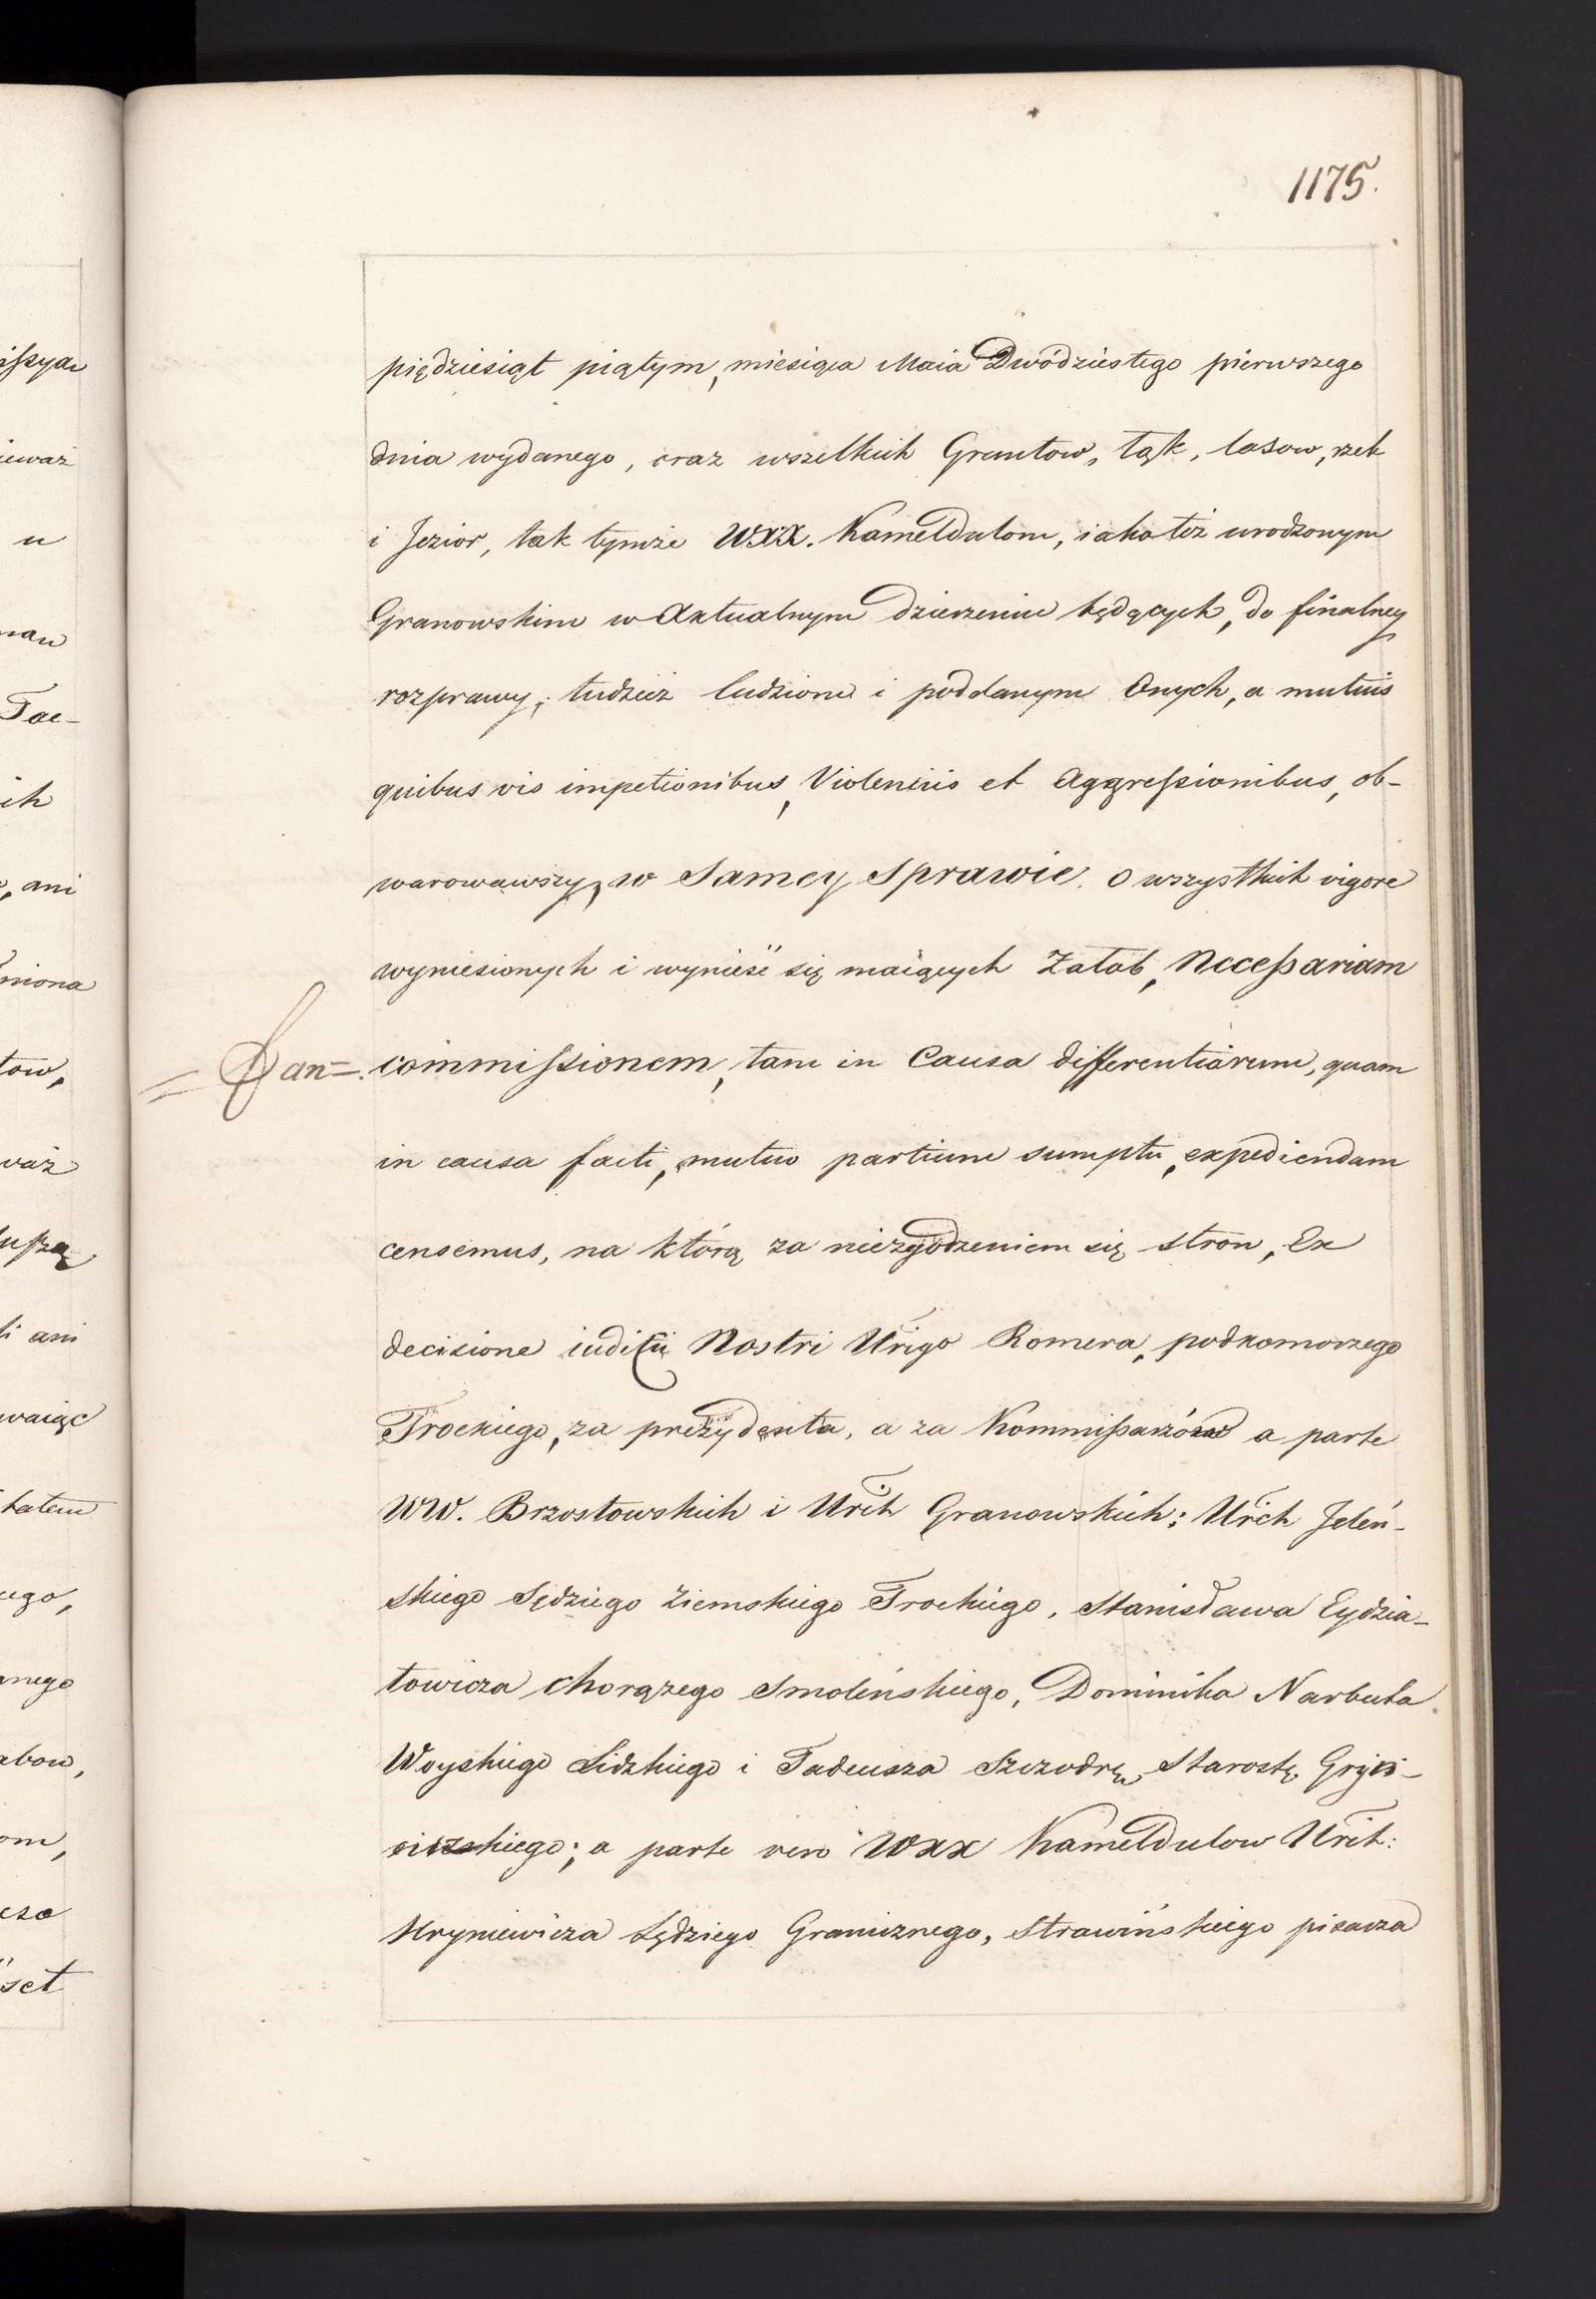 1175.
piędziesiąt piątym, miesiąca Maia Dwódziestego pierwszego
dnia wydanego, oraz wszelkich Gruntow, łąk, lasow, rzek
i Jezior, tak tymże WXX. Kameldulom, iako też urodzonym
Granowskim w Aktualnym dzierzeniu będących, do finalney
rozprawy, tudzież ludziom i poddanym Onych, a mutuis
quibus vis impetionibus, Violentiis et Aggressionibus, ob-
warowawszy, w Samey Sprawie o wszystkich vigore
wyniesionych i wynieść się maiących Załob, Necessariam
= an=. commissionem, tam in Causa differentiarum, quam
in causa facti, mutuo partium sumptu, expediendam
censemus, na którą za niezgodzeniem się stron, Ex
decisione iudicii Nostri Urigo Romera, podkomorzego
Trockiego, za prezydenta, a za Kommissarzów a parte
WW. Brzostowskich i Urich Granowskich: Urich Jeleń-
skiego Sędziego Ziemskiego Trockiego, Stanisława Eydzia-
towicza Chorązego Smoleńskiego, Dominika Narbuta
Woyskiego Lidzkiego i Tadeusza Szczodrę, Starostę
a parte vero WXX Kameldulow Urich:
Hryniewicza Sędziego Granicznego, Strawińskiego pisarza